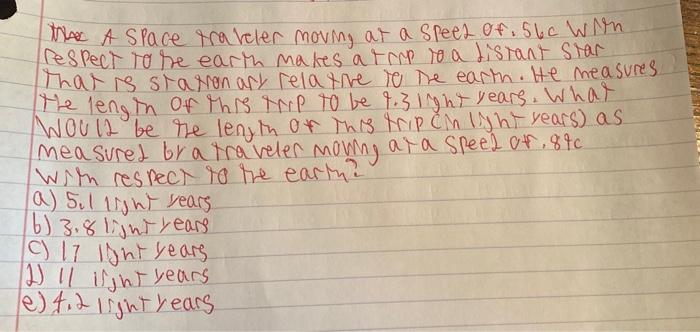 A space traveler moving at a speed of .56c with
respect to the earth makes a trip to a distant star
that is stationary relative to the earth. He measures
the length of this trip to be
light years. What
would be the length of this trip (in light years) as
measured by a traveler moving at a speed of .89c
with respect to the earth?
a) 5.1 light years
b) 3.8 light years
c) 17 light years
d) 11 light years
e) 4.2 light years